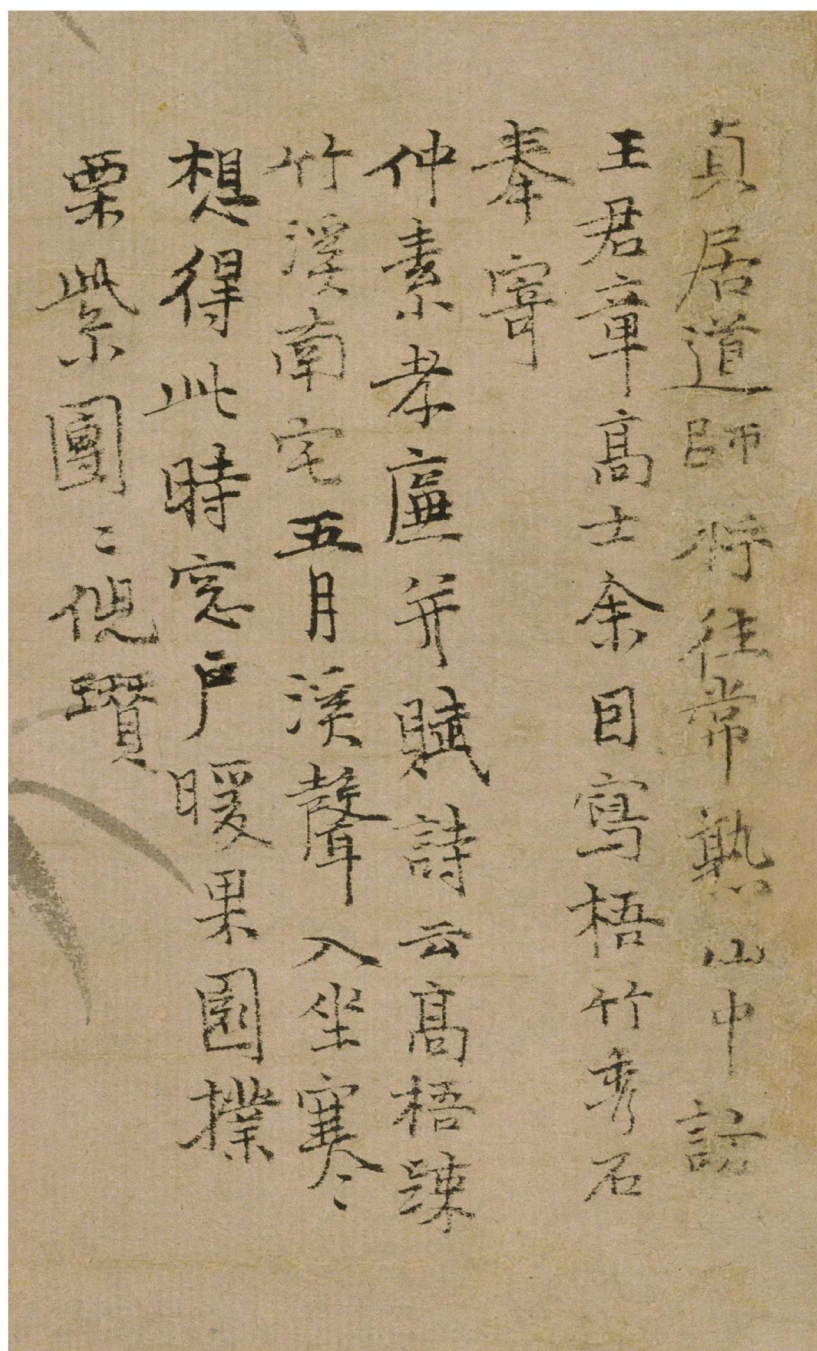 貞居道師將往常熟山中訪
王君章高士余因寫梧竹秀石
奉寄
仲素孝廉并賦詩云高梧踈
竹溪南宅五月溪聲入坐寒〻
想得此時窓戶暖果園撲
栗紫團〻倪瓚